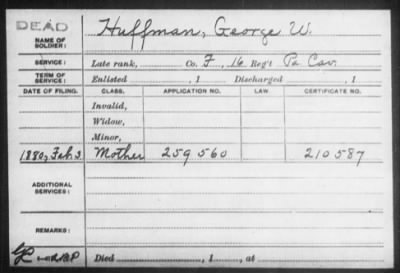 DEAD
NAME OF SOLDIER: Huffman, George W.
SERVICE: Late rank, Co. F, 16 Reg't Pa Cav.
TERM OF SERVICE: Enlisted , 1 Discharged , 1
DATE OF FILING. CLASS. APPLICATION NO. LAW. CERTIFICATE NO.
Invalid,
Widow,
Minor,
1880, Feb. 3 Mother 259 560 210 587
ADDITIONAL SERVICES:
REMARKS:
Died , 1 , at